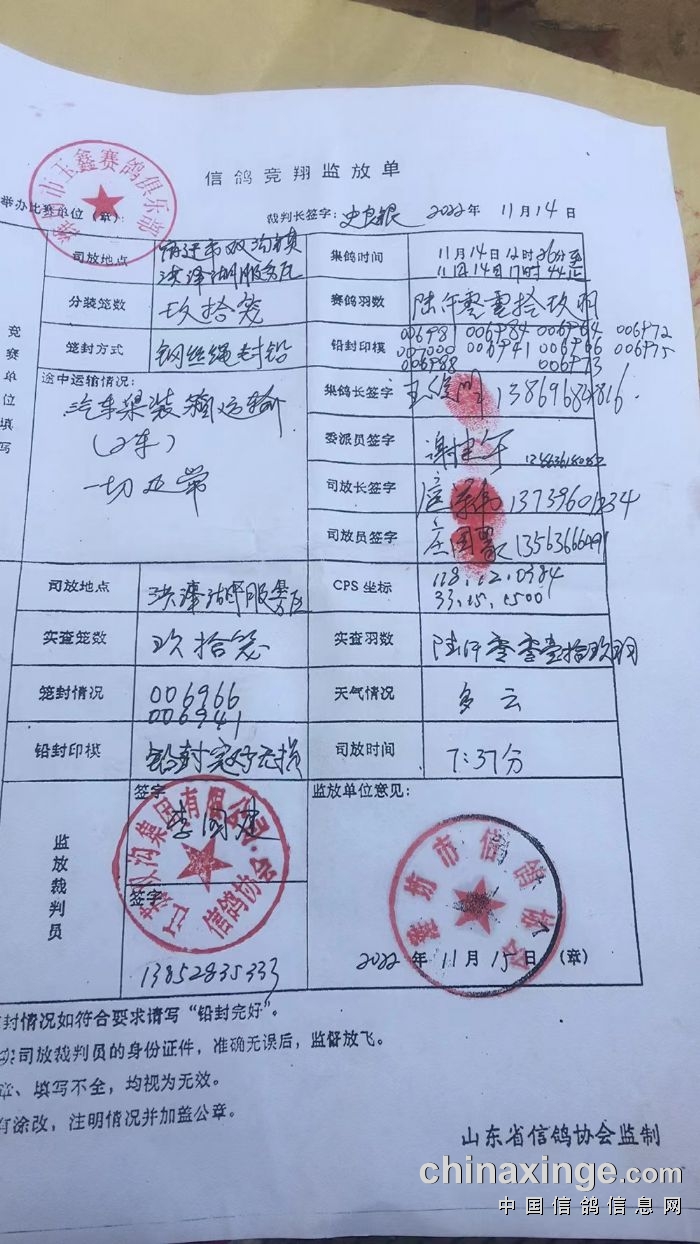 信鸽竞翔监放单
举办比赛单位(章):
玉鑫赛鸽俱乐部
裁判长签字:
2022年 11月14日
司放地点
洪泽湖服务区
集鸽时间
11月14日12时36分至
11月14日17时44止
分装笼数
玖拾笼
赛鸽羽数
陆仟零壹拾玖羽
笼封方式
钢丝绳封铅
铅封印模
006981 006984 006964 006972
007000 006941 006966 006975
006988 006973
竞赛单位填写
途中运输情况:
汽车集装箱运输
(2车)
一切正常
集鸽长签字
13869684816
委派员签字
司放长签字
司放员签字
司放地点
洪泽湖服务区
CPS 坐标
118.12.0984
33.15.1500
实查笼数
玖拾笼
实查羽数
陆仟零壹拾玖羽
笼封情况
006966
006941
天气情况
多云
铅封印模
铅封完好无损
司放时间
7:37分
监放裁判员
签字
双沟集团有限公司
信鸽协会
签字
13852835333
监放单位意见:
潍坊市信鸽协会
2022年11月15日(章)
封情况如符合要求请写“铅封完好”。
实司放裁判员的身份证件,准确无误后,监督放飞。
章、填写不全,均视为无效。
有涂改,注明情况并加盖公章。
山东省信鸽协会监制
chinaxinge.com
中国信鸽信息网